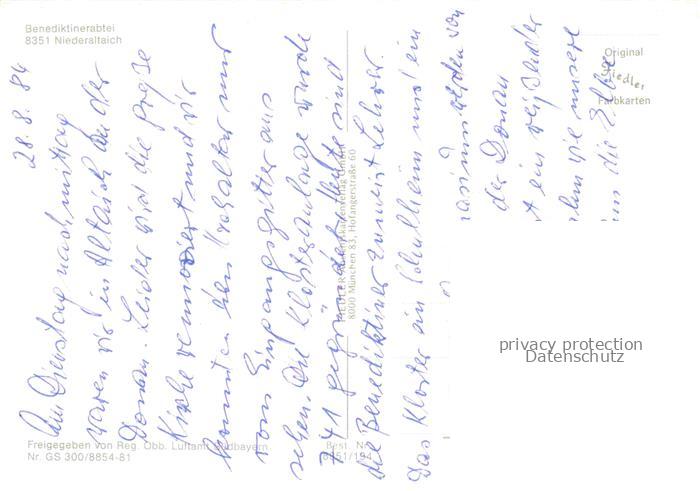 Benediktinerabtei
8351 Niederaltaich
Original
Farbkarten
28. 8. 84
Am Dienstag nachmittag
waren wir in Altaich an der
Donau. Leider wird die große
Kirche renoviert und wir
konnten den Hochaltar nur
vom Eingangsgitter aus
sehen. Die Klosteranlage wurde
741 gegründet. Heute sind
die Benediktiner zumeist Lehrer.
Das Kloster ein Schulheim und ein
werden von
der Donau
ein reißender
wie unsere
die Elbe
8000 München 83, Hofangerstraße 60
Freigegeben von Reg. Obb. Luftamt Südbayern
Nr. GS 300/8854-81
Best. Nr.
8351/194
privacy protection
Datenschutz